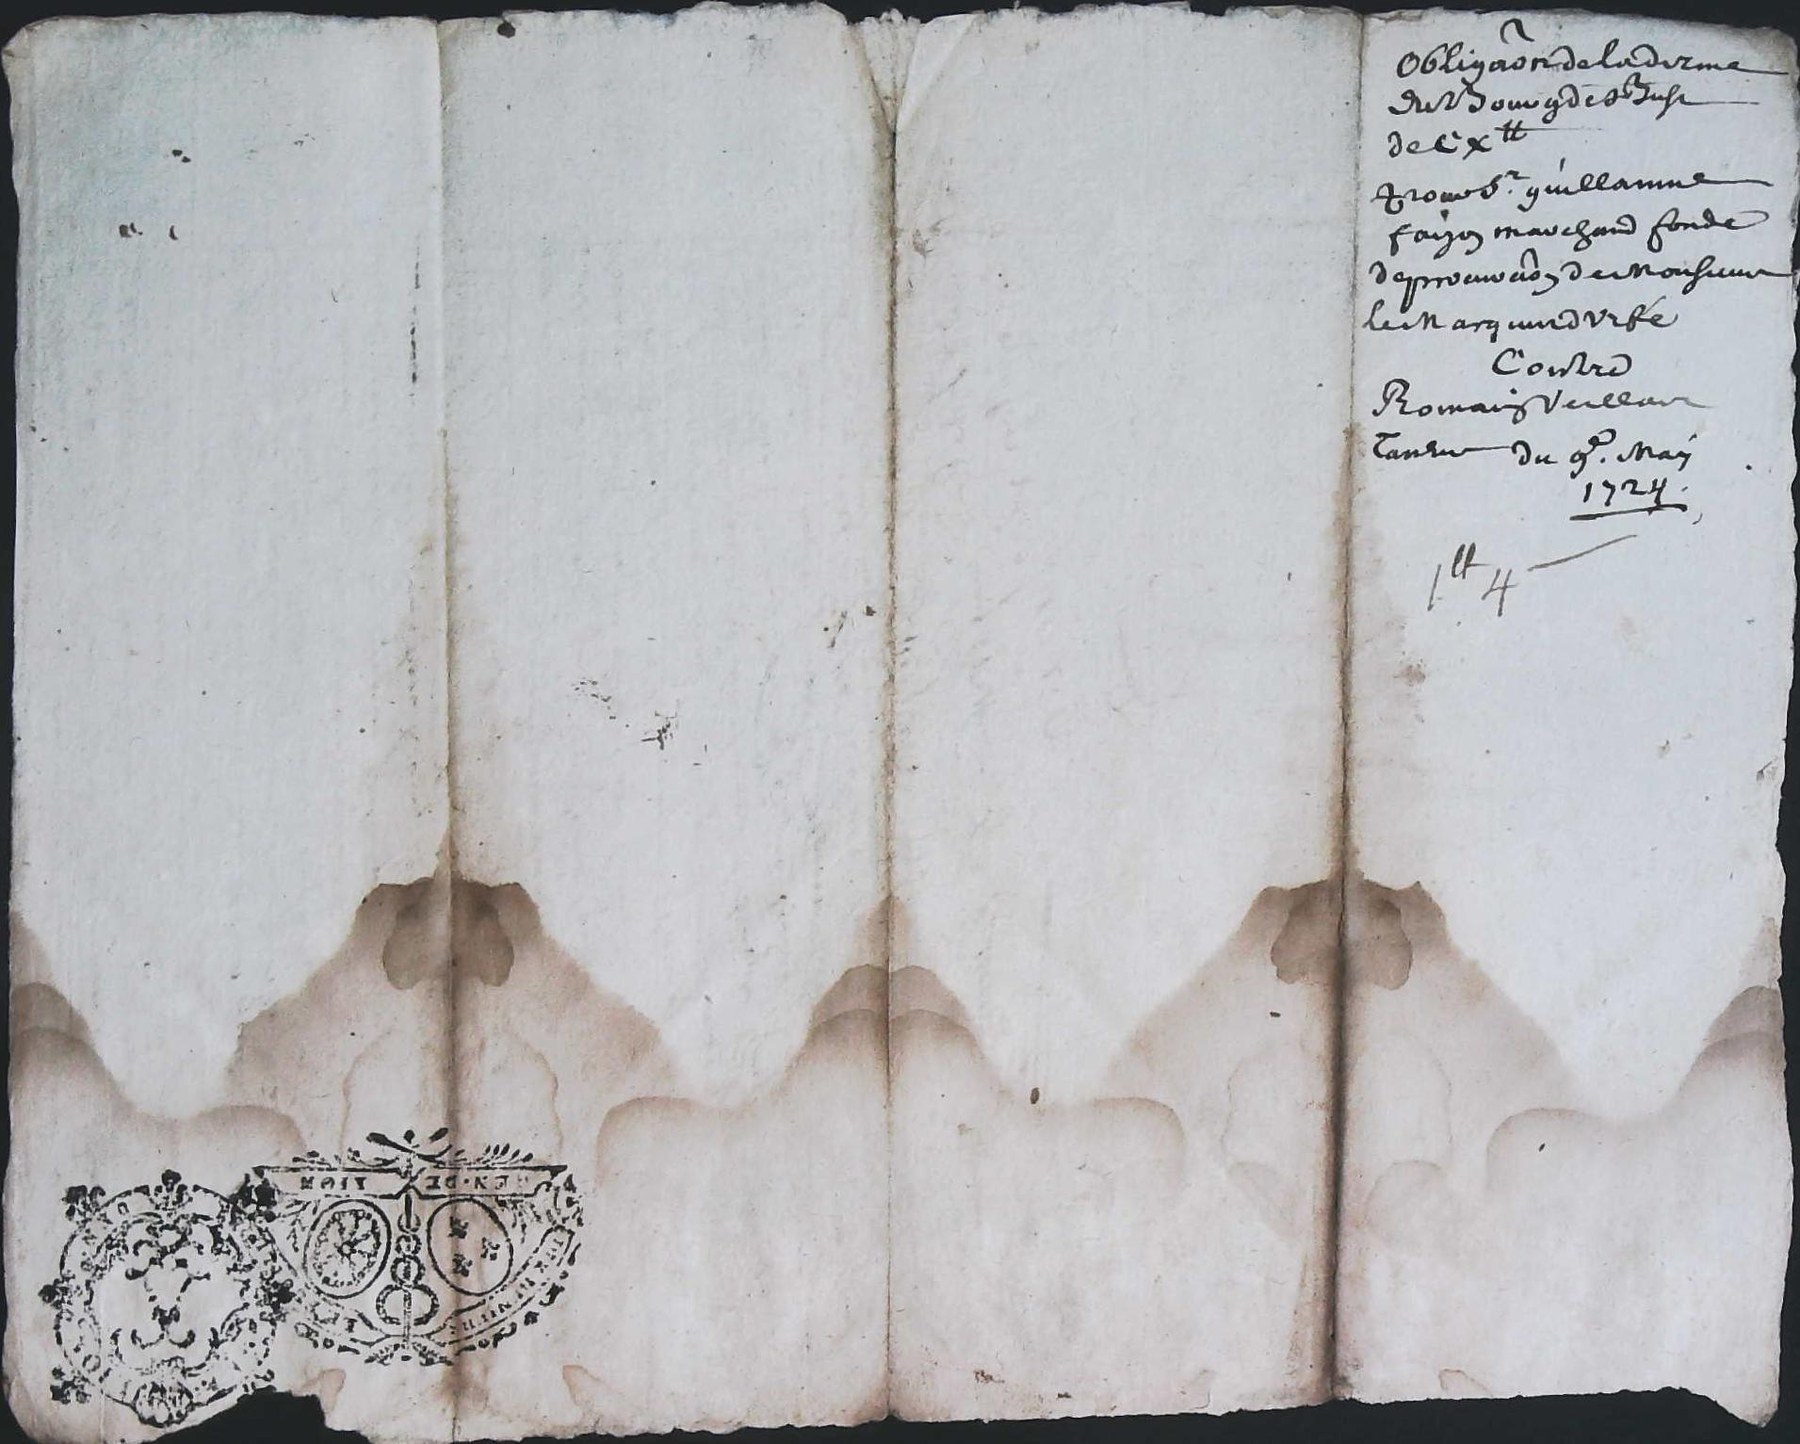 Obligãon de la dixme
du Bourg de St Just
de C X ₶
pour Sr. guillaume
fayon marchand fondé
de procurãon de Monsieur
le Marquis d Urfé
Contre
Romain Veillau
Tan du 9e. May
1724.
1 ₶ 4
GEN. DE LION